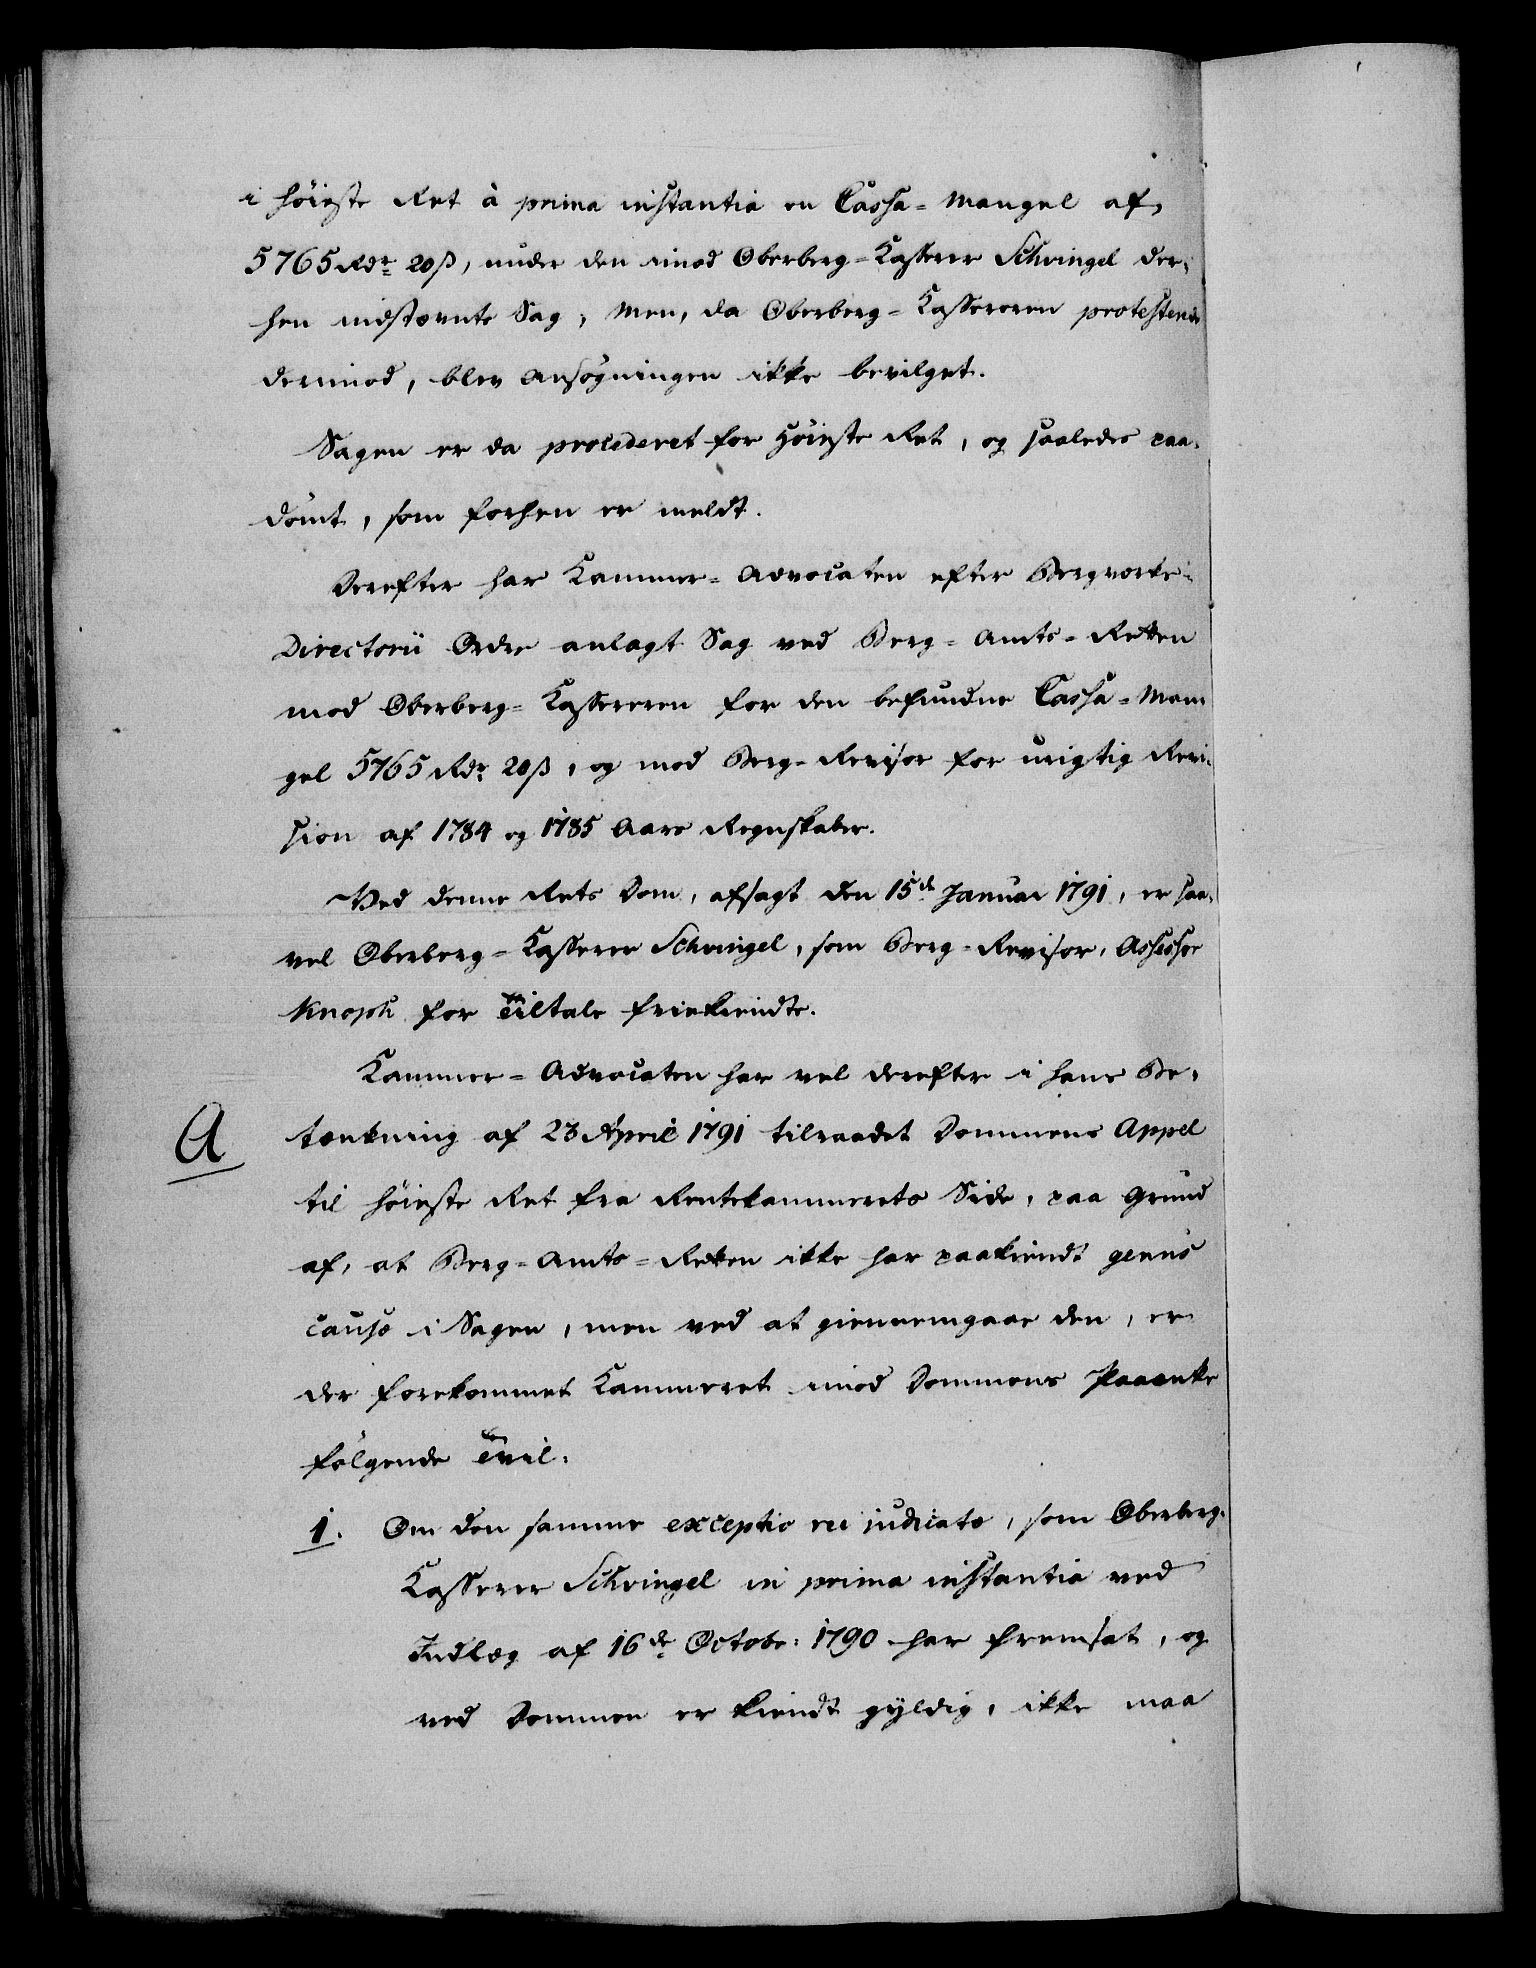 i höieste Ret à prima instantia en Cassa-Mangel af
5765 Rdr 20 ß, under den imod Oberberg-Kasserer Schvingel der-
hen indstævnte Sag, Men, da Oberberg-Kassereren protesterede
derimod, blev Ansögningen ikke bevilget.
Sagen er da procederet for Höieste Ret, og saaledes paa-
dömt, som forhen er meldt.
Derefter har Kammer-Advocaten efter Bergværks-
Directorii Ordre anlagt Sag ved Berg-Amts-Retten
mod Oberberg-Kassereren for den befundne Cassa-Man-
gel 5765 Rdr 20 ß, og mod Berg-Revisor for urigtig Revi-
sion af 1784 og 1785 Aars Regnskaber.
Ved denne Rets Dom, afsagt den 15de Januar 1791, er saa-
vel Oberberg-Kasserer Schvingel, som Berg-Revisor, Assessor
Knoph for Tiltale friekiendte.
Kammer-Advocaten har vel derefter i hans Be-
A tænkning af 23 April 1791 tilraadet Dommens Appel
til höieste Ret fra Rentekammerets Side, paa Grund
af, at Berg-Amts-Retten ikke har paakiendt genus
causæ i Sagen, men ved at giennemgaae den, er
der forekommet Kammeret imod Dommens Paaanke
fölgende Tvil.
1. Om den samme exceptio rei judicatæ, som Oberberg-
Kasserer Schvingel in prima instantia ved
Indlæg af 16de Octobr: 1790 har fremsat, og
ved Dommen er kiendt gyldig, ikke maa